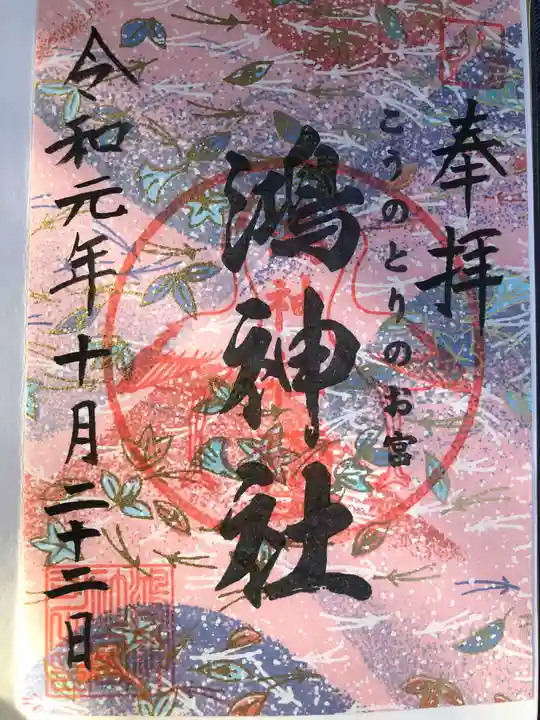 奉拝
こうのとりのお宮
鴻神社
令和元年十月二十二日